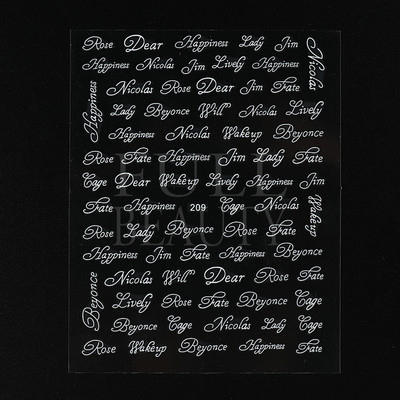 Rose Dear Happiness Lady Jim Nicolas
Happiness Nicolas Jim Lively Happiness
Happiness Nicolas Rose Dear Jim Fate
Lady Beyonce Will Nicolas Lively
Happiness Nicolas Wakeup Beyonce
Rose Fate Happiness Jim Lady Fate
Cage Dear Wakeup Lively Happiness Jim
Fate Happiness 209 Cage Nicolas Wakeup
Rose Lady Beyonce Rose Fate
Happiness Jim Fate Happiness Beyonce
Beyonce Nicolas Will Dear Rose Fate
Lively Rose Fate Beyonce Cage
Beyonce Cage Nicolas Lady Cage
Rose Wakeup Beyonce Happiness Fate
FULL
BEAUTY